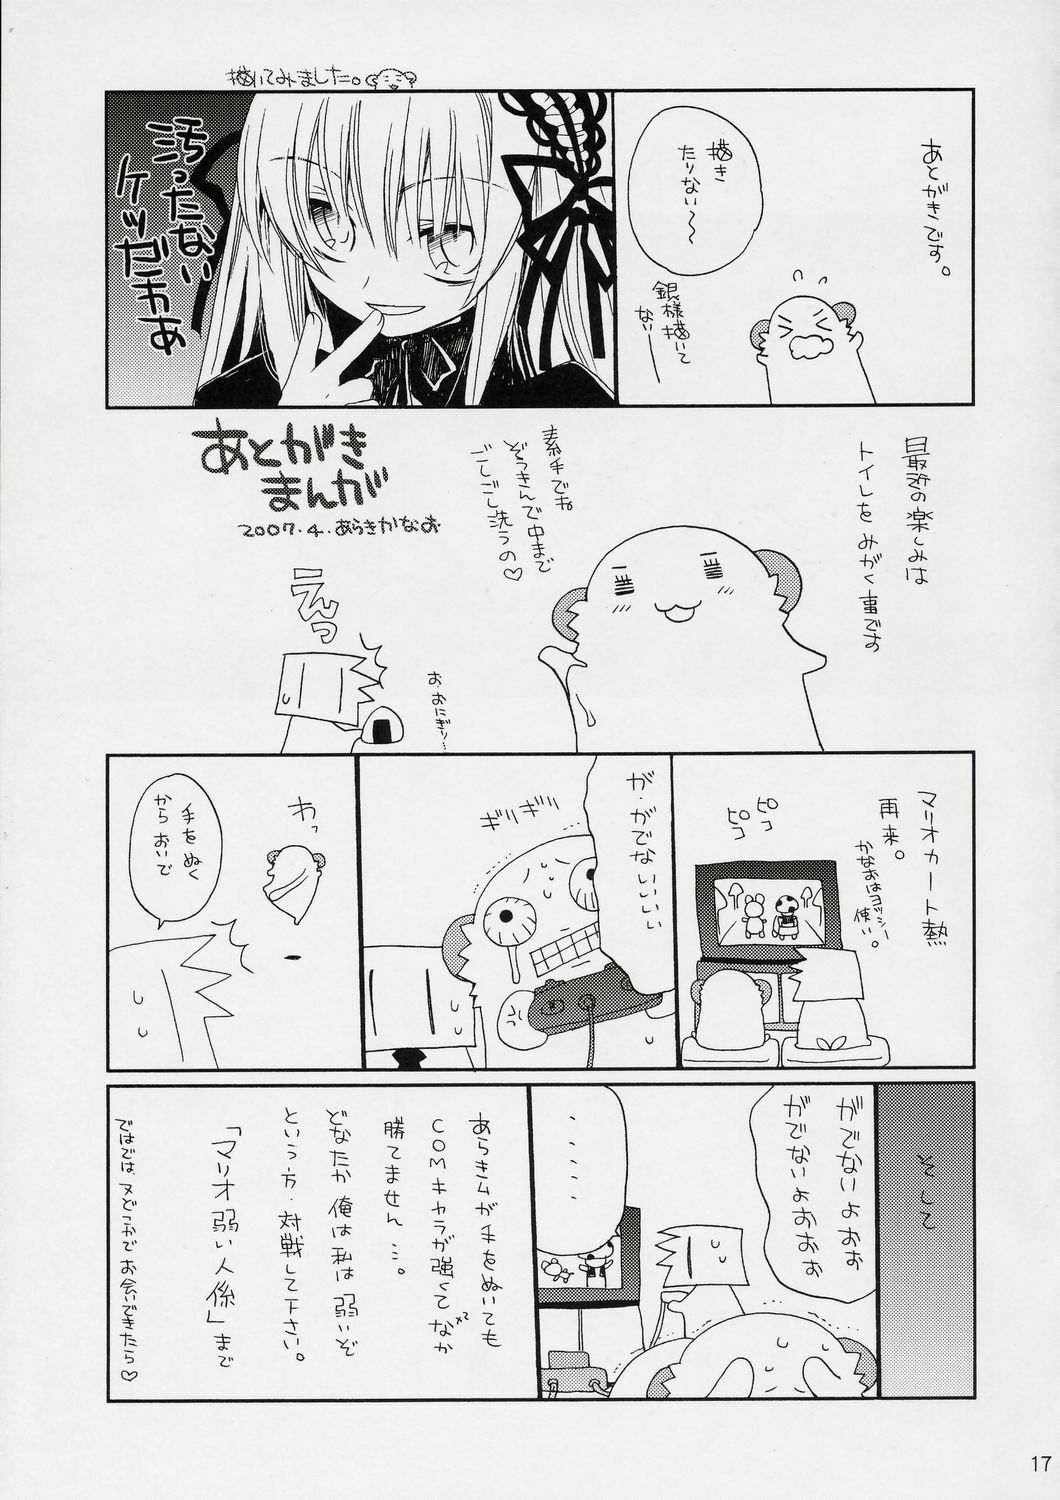 描いてみました。
あとがきです。
描き
たりない〜〜
銀様描いて
ないーー
汚ったない
ケツだわぁ
あとがき
まんが
2007.4.あらきかなお
最近の楽しみは
トイレをみがく事です
素手でね
ぞうきんで中まで
ごしごし洗うの♡
えんっ
お・おにぎり…
マリオカート熱
再来。
かなおはヨッシー
使い。
ピコ
ピコ
が・がでないぃぃぃ
ギリギリ
わっ
手をぬく
から おいで
そして
がでないよぉぉ
がでないよぉぉぉ
・・・・・・
あらきムが手をぬいても
COMキャラが強くてなか×2
勝てません…。
どなたか俺は私は弱いぞ
という方・対戦して下さい。
「マリオ弱い人係」まで
ではでは、又どっかでお会いできたら♡
17